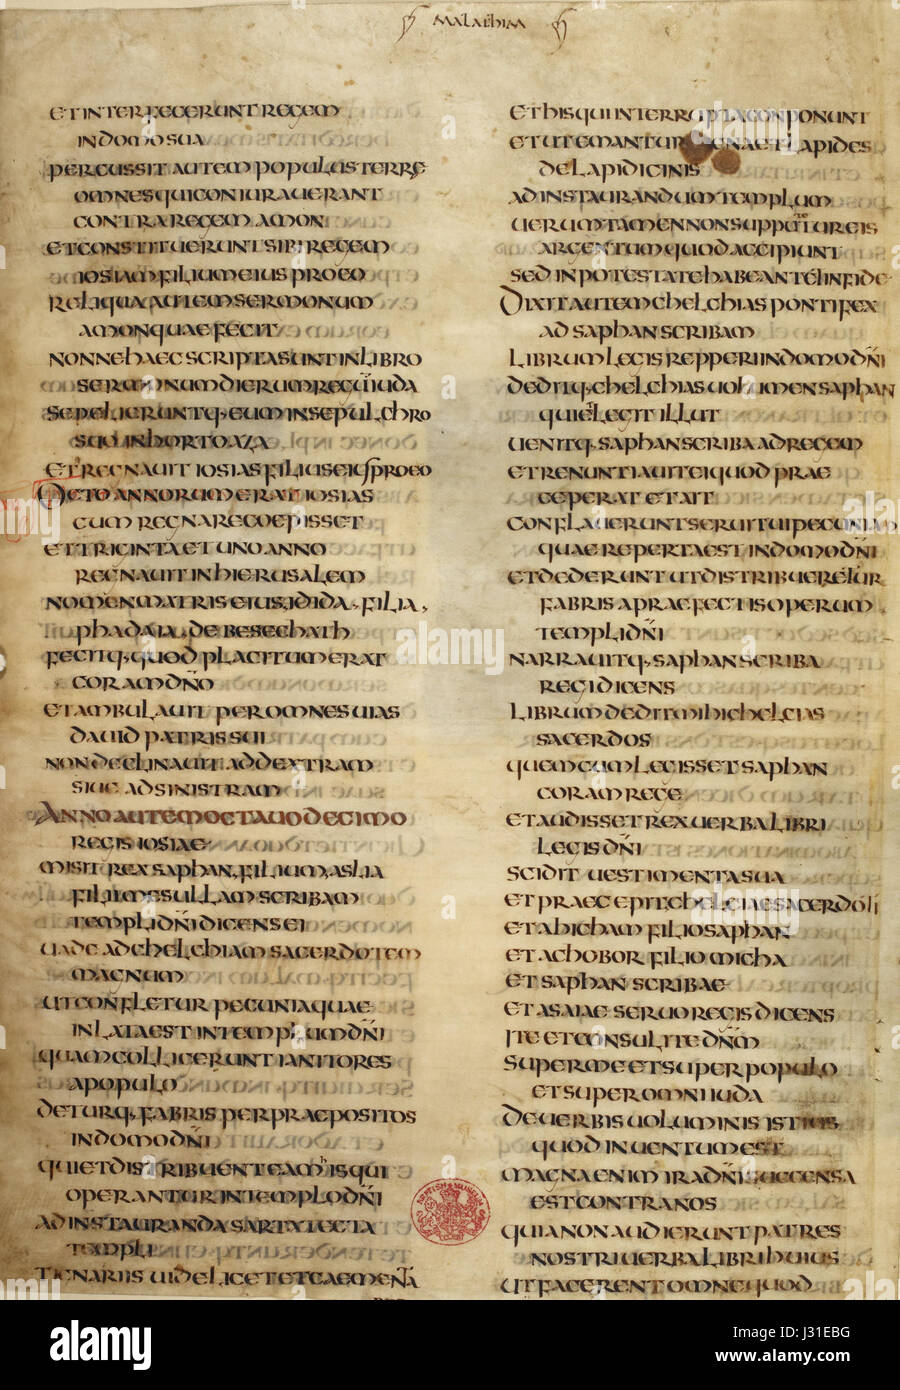 MALACHIM
ET INTERFECERUNT REGEM
IN DOMO SUA
PERCUSSIT AUTEM POPULUS TERRE
OMNES QUI CONIURAVERANT
CONTRA REGEM AMON
ET CONSTITUERUNT SIBI REGEM
IOSIAM FILIUM EIUS PRO EO
RELIQUA AUTEM SERMONUM
AMON QUAE FECIT
NONNE HAEC SCRIPTA SUNT IN LIBRO
SERMONUM DIERUM REGŪ IUDA
SEPELIERUNTQ· EUM IN SEPULCHRO
SUO IN HORTO AZA
ET REGNAUIT IOSIAS FILIUS EIUS PRO EO
OCTO ANNORUM ERAT IOSIAS
CUM REGNARE COEPISSET
ET TRIGINTA ET UNO ANNO
REGNAUIT IN HIERUSALEM
NOMEN MATRIS EIUS IDIDA· FILIA·
PHADAIA· DE BESECHATH
FECITQ· QUOD PLACITUM ERAT
CORAM DÑO
ET AMBULAUIT PER OMNES UIAS
DAUID PATRIS SUI
NON DECLINAUIT AD DEXTRAM
SIUE AD SINISTRAM
ANNO AUTEM OCTAUO DECIMO
REGIS IOSIAE
MISIT REX SAPHAN· FILIUM ASLIA
FILII MESULLAM SCRIBAM
TEMPLI DÑI DICENS EI
UADE AD CHELCHIAM SACERDOTEM
MAGNUM
UT CONFLETUR PECUNIA QUAE
INLATA EST IN TEMPLUM DÑI
QUAM COLLIGERUNT IANITORES
A POPULO
DETURQ· FABRIS PER PRAEPOSITOS
IN DOMO DÑI
QUI ET DISTRIBUENT EAM HIS QUI
OPERANTUR IN TEMPLO DÑI
AD INSTAURANDA SARTA TECTA
TEMPLI
TIGNARIIS UIDELICET ET CAEMENTA
ET HIS QUI INTERRUPTA CONPONUNT
ET UT EMANTUR LIGNA ET LAPIDES
DE LAPIDICINIS
AD INSTAURANDUM TEMPLUM
UERUMTAMEN NON SUPPUTETUR EIS
ARGENTUM QUOD ACCIPIUNT
SED IN POTESTATE HABEANT ET IN FIDE
DIXIT AUTEM CHELCHIAS PONTIFEX
AD SAPHAN SCRIBAM
LIBRUM LEGIS REPPERI IN DOMO DÑI
DEDITQ· CHELCHIAS UOLUMEN SAPHAN
QUI ET LEGIT ILLUT
UENITQ· SAPHAN SCRIBA AD REGEM
ET RENUNTIAUIT EI QUOD PRAE
CEPERAT ET AIT
CONFLAUERUNT SERUI TUI PECUNIAM
QUAE REPERTA EST IN DOMO DÑI
ET DEDERUNT UT DISTRIBUERETUR
FABRIS A PRAEFECTIS OPERUM
TEMPLI DÑI
NARRAUITQ· SAPHAN SCRIBA
REGI DICENS
LIBRUM DEDIT MIHI CHELCIAS
SACERDOS
QUEM CUM LEGISSET SAPHAN
CORAM REGE
ET AUDISSET REX UERBA LIBRI
LEGIS DÑI
SCIDIT UESTIMENTA SUA
ET PRAECEPIT CHELCIAE SACERDOTI
ET AHICHAM FILIO SAPHAN
ET ACHOBOR FILIO MICHA
ET SAPHAN SCRIBAE
ET ASAIAE SERUO REGIS DICENS
ITE ET CONSULITE DÑM
SUPER ME ET SUPER POPULO
ET SUPER OMNI IUDA
DE UERBIS UOLUMINIS ISTIUS
QUOD INUENTUM EST
MAGNA ENIM IRA DÑI SUCCENSA
EST CONTRA NOS
QUIA NON AUDIERUNT PATRES
NOSTRI UERBA LIBRI HUIUS
UT FACERENT OMNE QUOD
BRITISH MUSEUM
alamy
alamy
Image ID: J31EBG
www.alamy.com